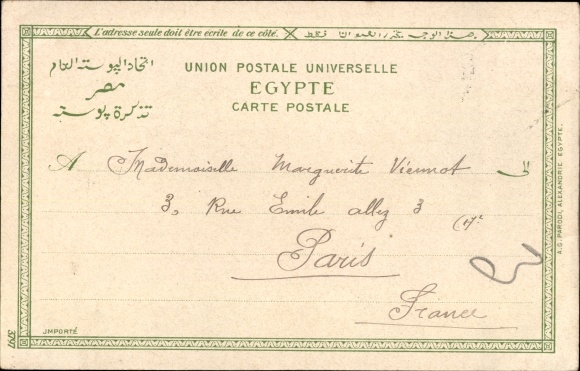 L'adresse seule doit être écrite de ce côté.
هذا الوجه يحرر العنوان فقط
اتحاد البوسته العام
مصر
تذكرة بوسته
UNION POSTALE UNIVERSELLE
EGYPTE
CARTE POSTALE
A Mademoiselle Marguerite Viennot الى
3, Rue Emile Allez 3
(17e
Paris
France
A.G. PARODI, ALEXANDRIE EGYPTE.
IMPORTÉ